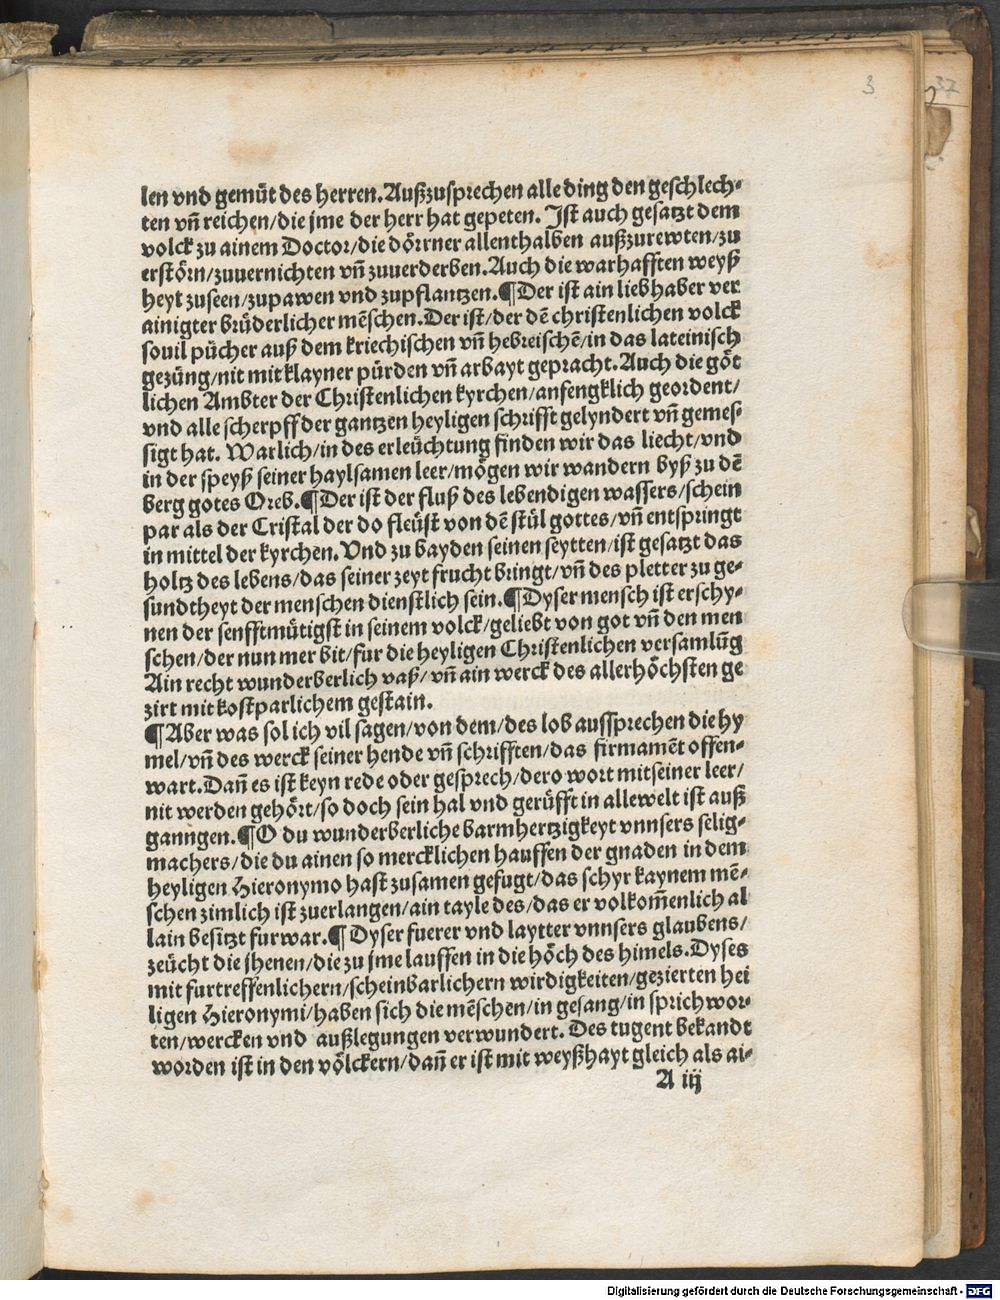 3
37
len vnd gemüt des herren. Außzusprechen alle ding den geschlech-
ten vn̄ reichen/die jme der herr hat gepeten. Ist auch gesatzt dem
volck zu ainem Doctor/die dörrner allenthalben außzurewten/zu
erstörn/zuuernichten vn̄ zuuerderben. Auch die warhafften weyß
heyt zuseen/zupawen vnd zupflantzen. ¶ Der ist ain liebhaber ver
ainigter brüderlicher mēschen. Der ist/der dē christenlichen volck
souil pücher auß dem kriechischen vn̄ hebreischē/in das lateinisch
gezüng/nit mit klayner pürden vn̄ arbayt gepracht. Auch die göt
lichen Ambter der Christenlichen kyrchen/anfengklich geordent/
vnd alle scherpff der gantzen heyligen schrifft gelyndert vn̄ gemes-
sigt hat. Warlich/in des erleüchtung finden wir das liecht/vnd
in der speyß seiner haylsamen leer/mögen wir wandern byß zu dē
berg gotes Oreb. ¶ Der ist der fluß des lebendigen wassers/schein
par als der Cristal der do fleüst von dē stül gottes/vn̄ entspringt
in mittel der kyrchen. Vnd zu bayden seinen seytten/ist gesatzt das
holtz des lebens/das seiner zeyt frucht bringt/vn̄ des pletter zu ge-
sundtheyt der menschen dienstlich sein. ¶ Dyser mensch ist erschy-
nen der senfftmütigst in seinem volck/geliebt von got vn̄ den men
schen/der nun mer bit/fur die heyligen Christenlichen versamlūg
Ain recht wunderberlich vaß/vn̄ ain werck des allerhöchsten ge
zirt mit kostparlichem gestain.
¶ Aber was sol ich vil sagen/von dem/des lob aussprechen die hy
mel/vn̄ des werck seiner hende vn̄ schrifften/das firmamēt offen-
wart. Dan̄ es ist keyn rede oder gesprech/dero wort mit seiner leer/
nit werden gehört/so doch sein hal vnd gerüfft in alle welt ist auß
ganngen. ¶ O du wunderberliche barmhertzigkeyt vnnsers selig-
machers/die du ainen so mercklichen hauffen der gnaden in dem
heyligen Hieronymo hast zusamen gefugt/das schyr kaynem mē-
schen zimlich ist zuerlangen/ain tayle des/das er volkom̄enlich al
lain besitzt furwar. ¶ Dyser fuerer vnd laytter vnnsers glaubens/
zeücht die jhenen/die zu jme lauffen in die höch des himels. Dyses
mit furtreffenlichern/scheinbarlichern wirdigkeiten/gezierten hei
ligen Hieronymi/haben sich die mēschen/in gesang/in sprichwor-
ten/wercken vnd außlegungen verwundert. Des tugent bekandt
worden ist in den völckern/dan̄ er ist mit weyßhayt gleich als ai-
A iij
Digitalisierung gefördert durch die Deutsche Forschungsgemeinschaft - DFG